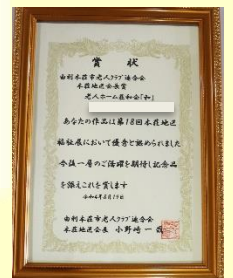 賞状
由利本荘市老人クラブ連合会
本荘地区会長賞
老人ホーム荘和会「和」
あなたの作品は第18回本荘地区
福祉展において優秀と認められました
今後一層のご活躍を期待し記念品
を添えこれを賞します
令和4年8月19日
由利本荘市老人クラブ連合会
本荘地区会長 小野崎一